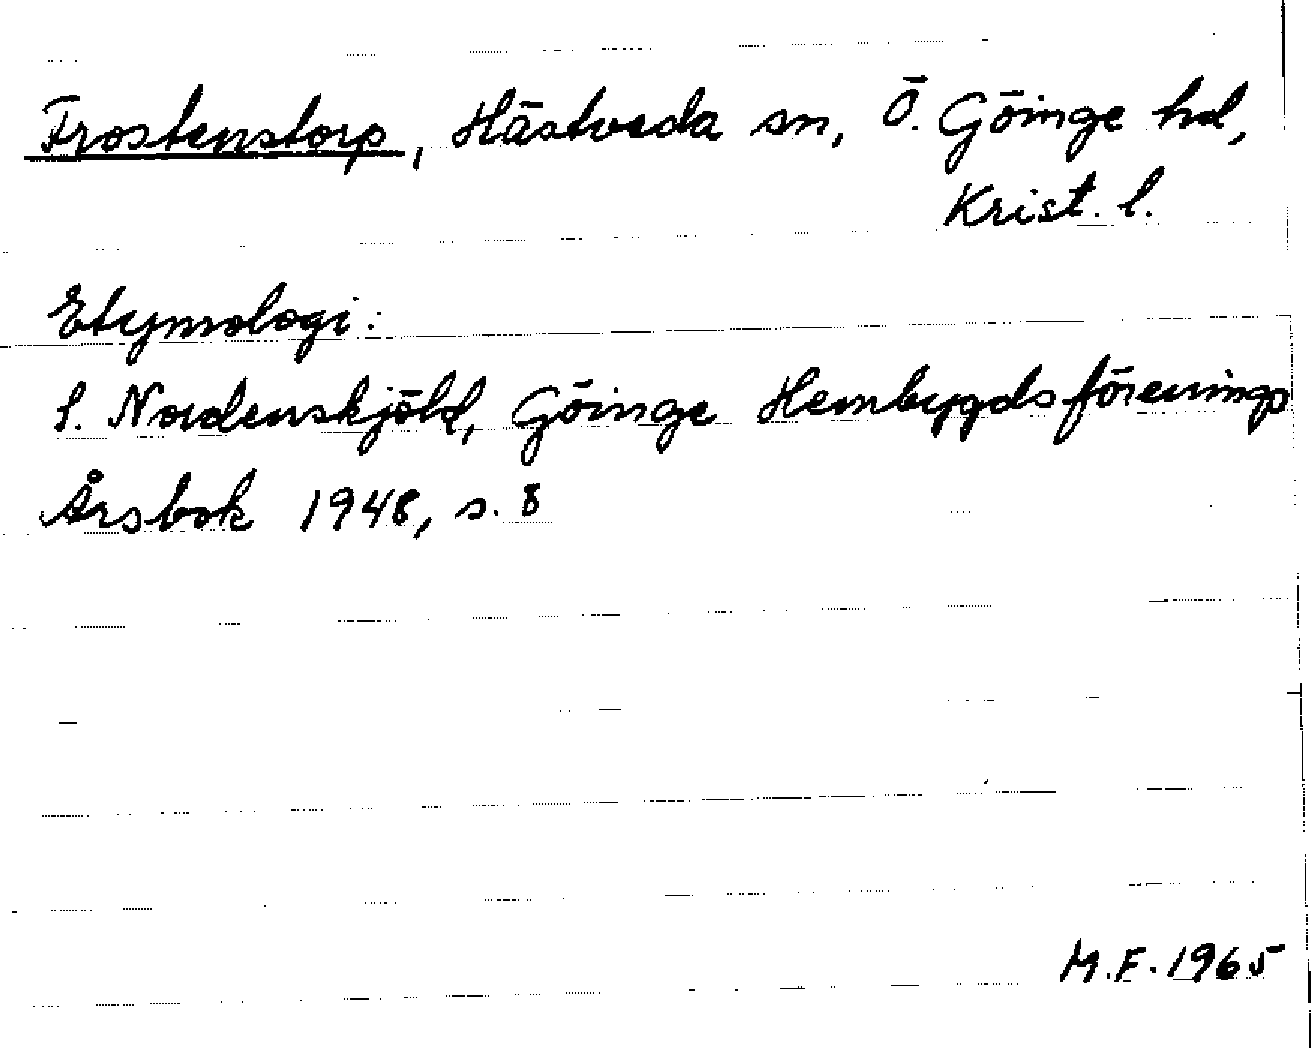 Frostenstorp, Hästveda sn, Ö. Göinge hd,
Krist. l.
Etymologi:
S. Nordenskjöld, Göinge Hembygdsförenings
Årsbok 1948, s. 8
M.F. 1965